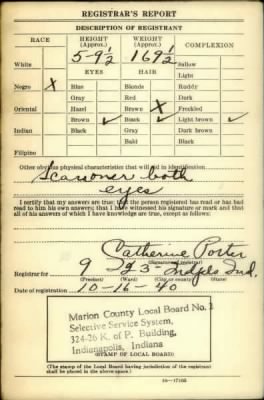 REGISTRAR'S REPORT
DESCRIPTION OF REGISTRANT
RACE HEIGHT (Approx.) WEIGHT (Approx.) COMPLEXION
5-9½ 169½
White Sallow
EYES HAIR Light
Negro X Blue Blonde Ruddy
Gray Red Dark
Oriental Hazel Brown X Freckled
Brown ✓ Black ✓ Light brown ✓
Indian Black Gray Dark brown
Bald Black
Filipino
Other obvious physical characteristics that will aid in identification
both
eyes
I certify that my answers are true; that the person registered has read or has had
read to him his own answers; that I have witnessed his signature or mark and that
all of his answers of which I have knowledge are true, except as follows:
Catherine Porter
(Signature of registrar)
Registrar for 9 23 Indpls Ind.
(Precinct) (Ward) (City or county) (State)
Date of registration 10-16-40
Marion County Local Board No. 1
Selective Service System,
324-26 K. of P. Building,
Indianapolis, Indiana
(STAMP OF LOCAL BOARD)
(The stamp of the Local Board having jurisdiction of the registrant
shall be placed in the above space.)
16-17105